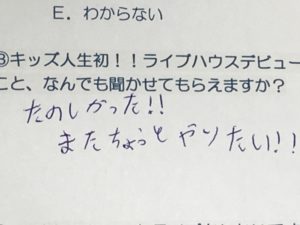 E. わからない
③キッズ人生初！！ライブハウスデビュー
こと、なんでも聞かせてもらえますか？
たのしかった！！
またちょっと やりたい！！